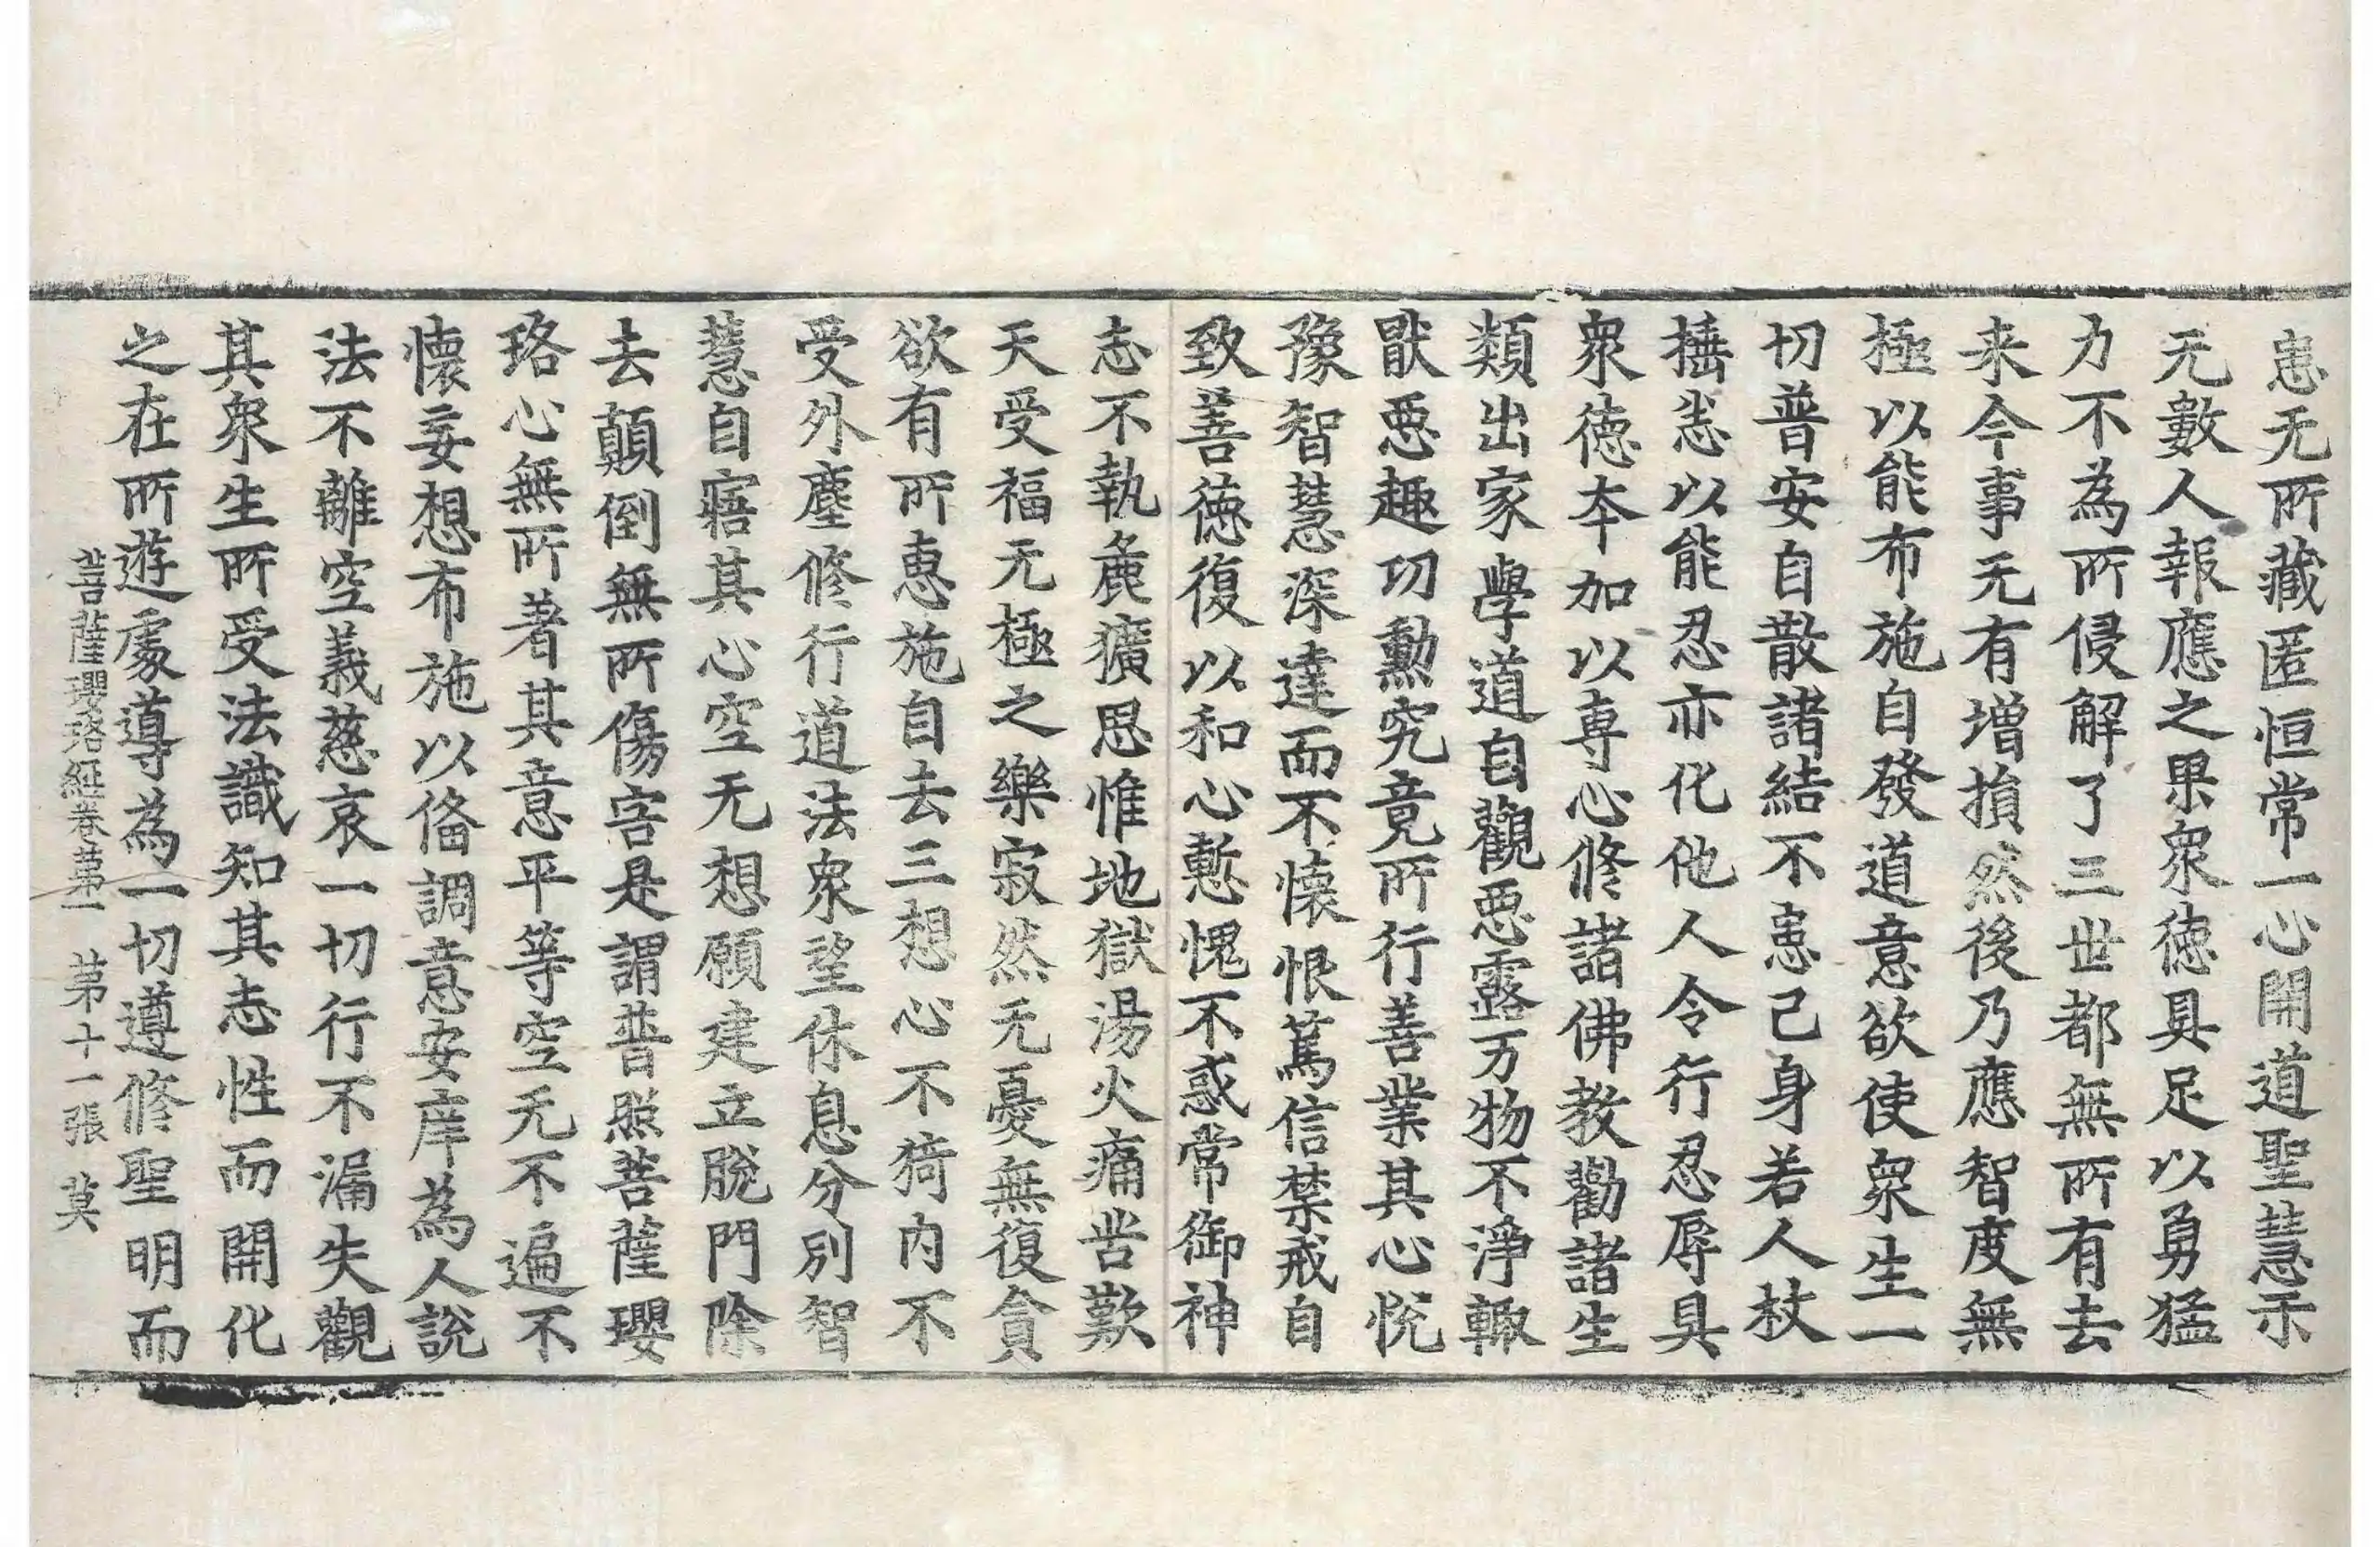 恚无所藏匿恒常一心開道聖慧示
无數人報應之果衆徳具足以勇猛
力不為所侵解了三世都無所有去
来今事无有增損然後乃應智度無
極以能布施自發道意欲使衆生一
切普安自散諸結不恚己身若人杖
捶恙以能忍亦化他人令行忍辱具
衆徳夲加以専心修諸佛教勸諸生
類出家學道自觀惡露万物不淨輙
猒惡趣功勳究竟所行善業其心悅
豫智慧深達而不懐恨篤信禁戒自
致善徳復以和心慙愧不惑常御神
志不執麁獷思惟地獄湯火痛苦歎
天受福无極之樂寂然无憂無復貪
欲有所恵施自去三想心不猗内不
受外塵修行道法衆望休息分別智
慧自寤其心空无想願建立脫門除
去顛倒無所傷害是謂普照菩薩瓔
珞心無所著其意平等空无不遍不
懐妄想布施以俻調意安庠為人說
法不離空義慈哀一切行不漏失觀
其衆生所受法識知其志性而開化
之在所遊處導為一切遵修聖明而
菩薩瓔珞經卷第一 第十一張 莫